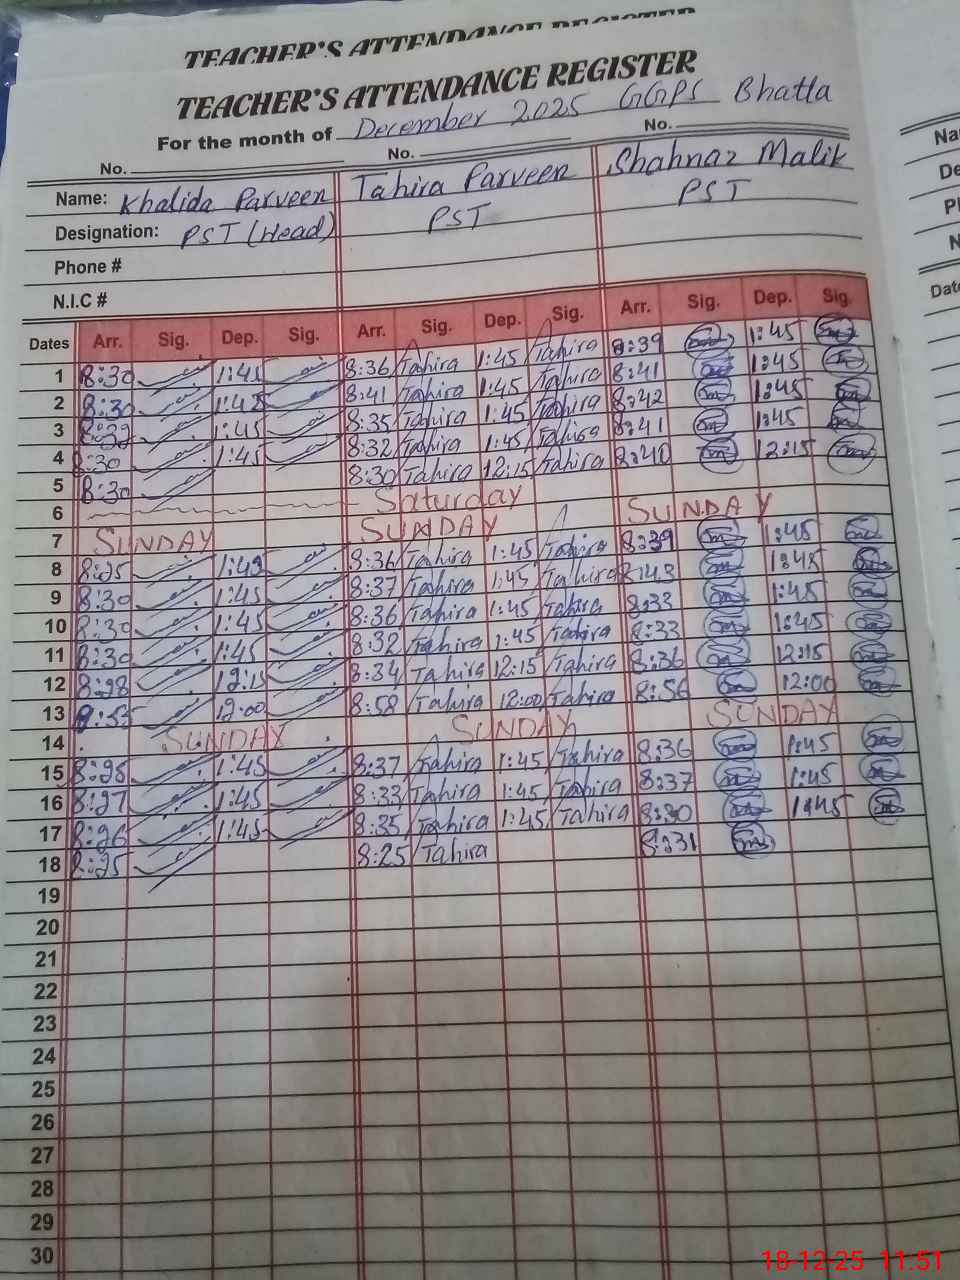 TEACHER'S ATTENDANCE REGISTER
TEACHER'S ATTENDANCE REGISTER
For the month of December 2025 GGPS Bhatla
No. No. No.
Name: Khalida Parveen Tahira Parveen Shahnaz Malik
Designation: PST (Head) PST PST
Phone #
N.I.C #
Dates Arr. Sig. Dep. Sig. Arr. Sig. Dep. Sig. Arr. Sig. Dep. Sig.
1 8:30 1:45 8:36 Tahira 1:45 Tahira 8:39 1:45
2 8:30 1:45 8:41 Tahira 1:45 Tahira 8:41 1:45
3 8:32 1:45 8:35 Tahira 1:45 Tahira 8:42 1:45
4 8:30 1:45 8:32 Tahira 1:45 Tahira 8:41 1:45
5 8:30 8:30 Tahira 12:15 Tahira 8:40 12:15
6 Saturday
7 SUNDAY SUNDAY SUNDAY
8 8:25 1:45 8:36 Tahira 1:45 Tahira 8:39 1:45
9 8:30 1:45 8:37 Tahira 1:45 Tahira 8:43 1:45
10 8:30 1:45 8:36 Tahira 1:45 Tahira 8:33 1:45
11 8:30 1:45 8:32 Tahira 1:45 Tahira 8:33 1:45
12 8:28 12:15 8:34 Tahira 12:15 Tahira 8:36 12:15
13 12:00 8:58 Tahira 12:00 Tahira 8:56 12:00
14 SUNDAY SUNDAY SUNDAY
15 8:28 1:45 8:37 Tahira 1:45 Tahira 8:36 1:45
16 8:27 1:45 8:33 Tahira 1:45 Tahira 8:37 1:45
17 8:26 1:45 8:35 Tahira 1:45 Tahira 8:30 1:45
18 8:25 8:25 Tahira 8:31
19
20
21
22
23
24
25
26
27
28
29
30
18-12-25 11:51